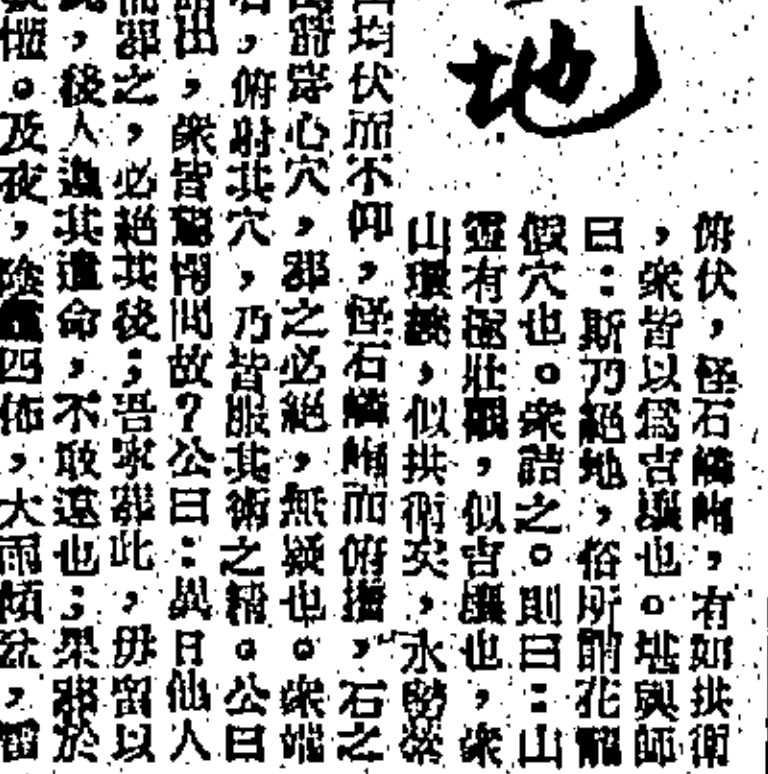 地
俯伏，怪石嶙峋，有如拱衛
，衆皆以爲吉壤也。堪輿師
曰：斯乃絕地，俗所謂花龍
假穴也。衆詰之。則曰：山
靈有極壯觀，似吉壤也，衆
山環繞，似拱衛矣，水勢縈
均伏而不仰，怪石嶙峋而俯插，石之
箭穿心穴，葬之必絕，無疑也。衆端
，俯射其穴，乃皆服其術之精。公曰
出，衆皆驚愕問故？公曰：異日他人
葬之，必絕其後；吾寧葬此，毋留以
，後人遵其遺命，不敢違也；果葬於
。及夜，陰霾四佈，大雨傾盆，雷